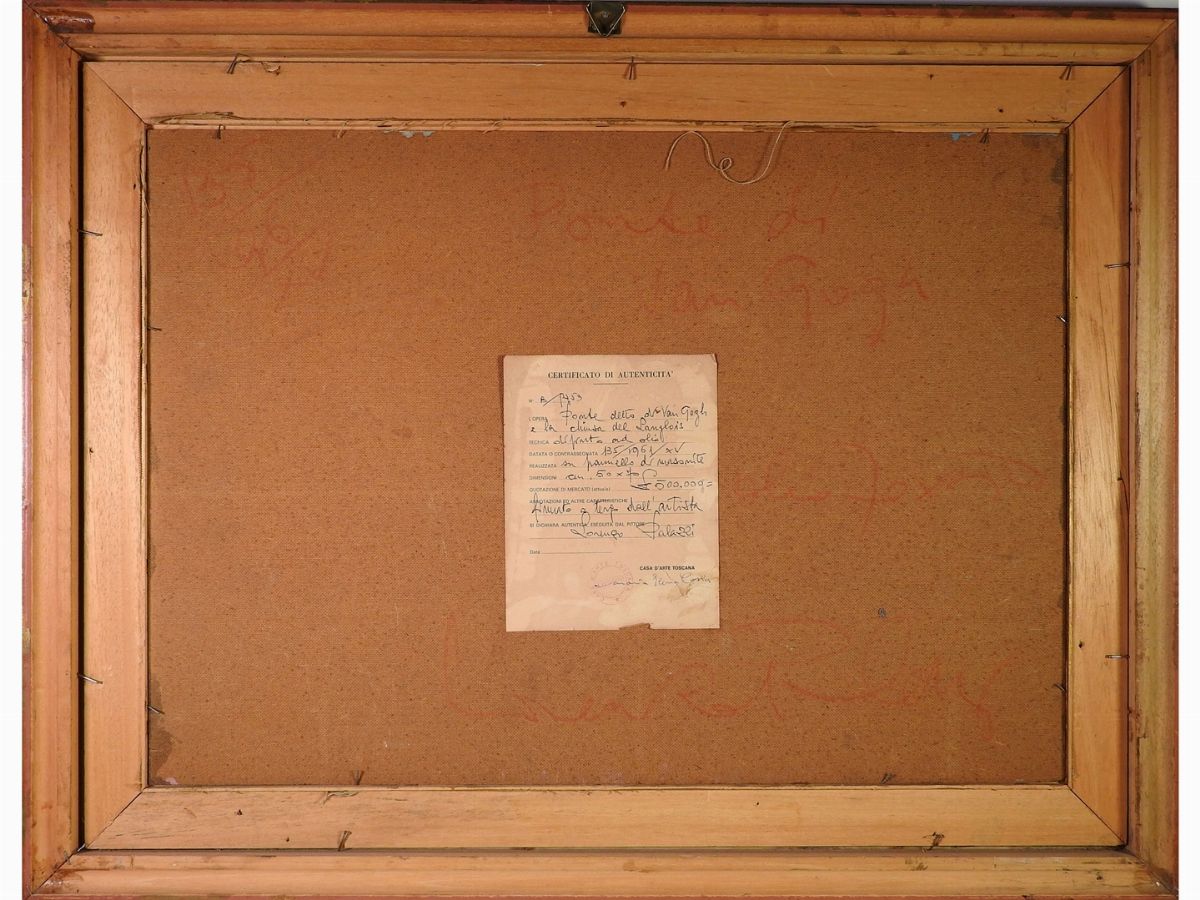 Ponte di
Van Gogh
CERTIFICATO DI AUTENTICITA'
N° A/1453
L'OPERA Ponte detto di Van Gogh
e la chiusa del Langlois
TECNICA dipinto ad olio
DATATA O CONTRASSEGNATA 135/1961/XV
REALIZZATA su pannello di masonite
DIMENSIONI cm. 50 x 70
QUOTAZIONE DI MERCATO (attuale) £ 500.000=
ANNOTAZIONI ED ALTRE CARATTERISTICHE
firmato a tergo dall'artista
SI DICHIARA AUTENTICA, ESEGUITA DAL PITTORE
Lorenzo
Data
CASA D'ARTE TOSCANA